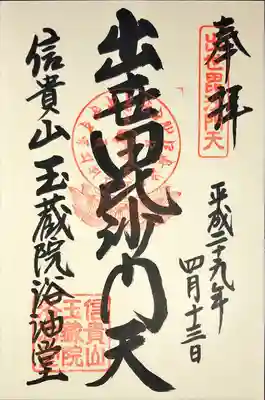 奉拝
出世毘沙門天
平成二十九年
四月十三日
出世毘沙門天
信貴山玉蔵院浴油堂
信貴山
玉蔵院